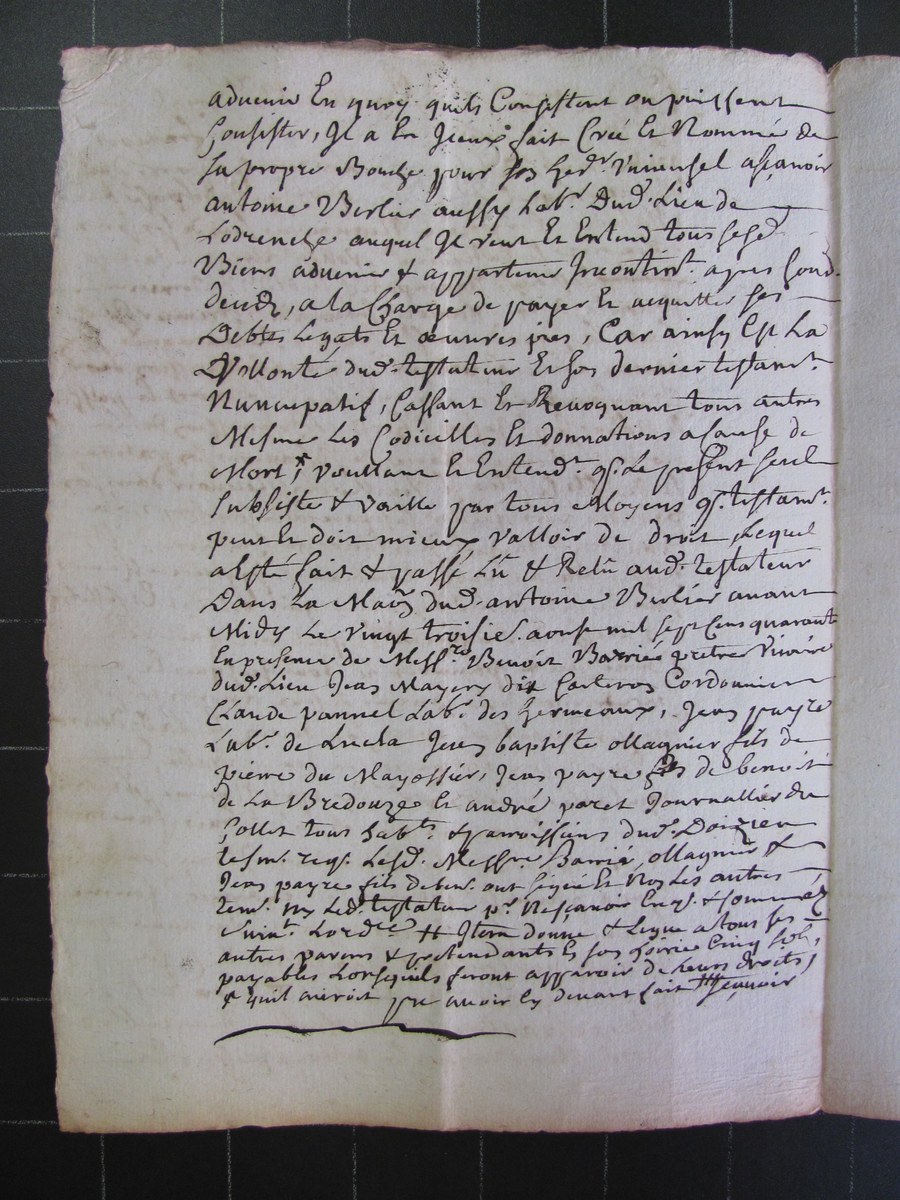 advenir En quoy quils Consistent ou puissent
Consister, Il a En Iceux fait Créé Et Nommé de
sa propre Bouche pour son herr. Universel asçavoir
antoine Berlier aussy Labr. Dud. Lieu de
Lodrenche auquel Il veut Et Entend tous sesd.
Biens advenir & appartenir Incontint. apres sond.
deceds, a la Charge de payer Et acquitter ses
Debtes Legats Et œuvres pies, Car ainsy Est La
Vollonté dud. testateur Et son dernier testamt.
Nuncupatif, Cassant Et Revoquant tous autres
Mesme Les Codicilles Et donnations a cause de
Mort, voullant Et Entendt. q. Le present seul
subsiste & vaille par tous Moyens q. testamt.
peut Et doit mieux valloir de droit, Lequel
a Esté fait & passé Lû & Relû aud. testateur
Dans La Maon dud. antoine Berlier avant
Midy Le vingt troisie. aoust mil sept Cens quarante
En presence de Messre. Benoit Barrié prêtre vicaire
dud. Lieu Jean Mayery dit Cordonnier
Claude pannel Labr. des hermeaux, Jean payre
Labr. de Lucha Jean baptiste ollagnier fils de
pierre du Mayossier, Jean payre fils de benoit
de La Bredouze Et andré varet Journallier du
Collet tous habts. & parroissiens dud. Doizieu
tesm. req. Lesd. Messre. Barrié, ollagnier &
Jean payre fils de ben. ont signé Et Non Les autres
tem. Ny Led. testateur pr. Ne sçavoir Enq. & sommez
suivt. Lordce # Item donne & Legue a tous ses
autres parens & pretendants En son hoirie Cinq sols,
payables Lorsquils feront apparoir de Leurs droits,
* quil auroit pu avoir Cy devant fait